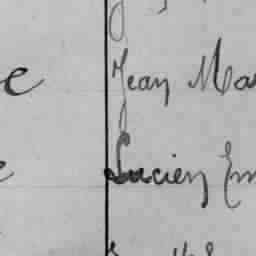 e Jean Ma
e Lucien Em